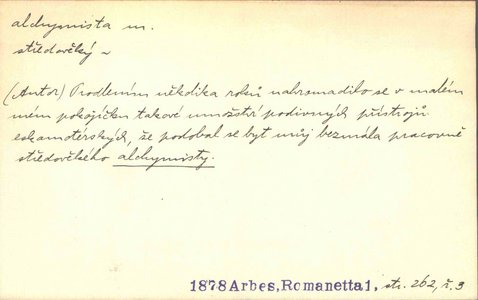 alchymista m.
středověký ~
(Autor) Prodlením několika roků nahromadilo se v malém
mém pokojíčku takové množství podivných přístrojů
eskamotérských, že podobal se byt můj bezmála pracovně
středověkého alchymisty.
1878 Arbes, Romanetta 1, str. 262, ř. 3